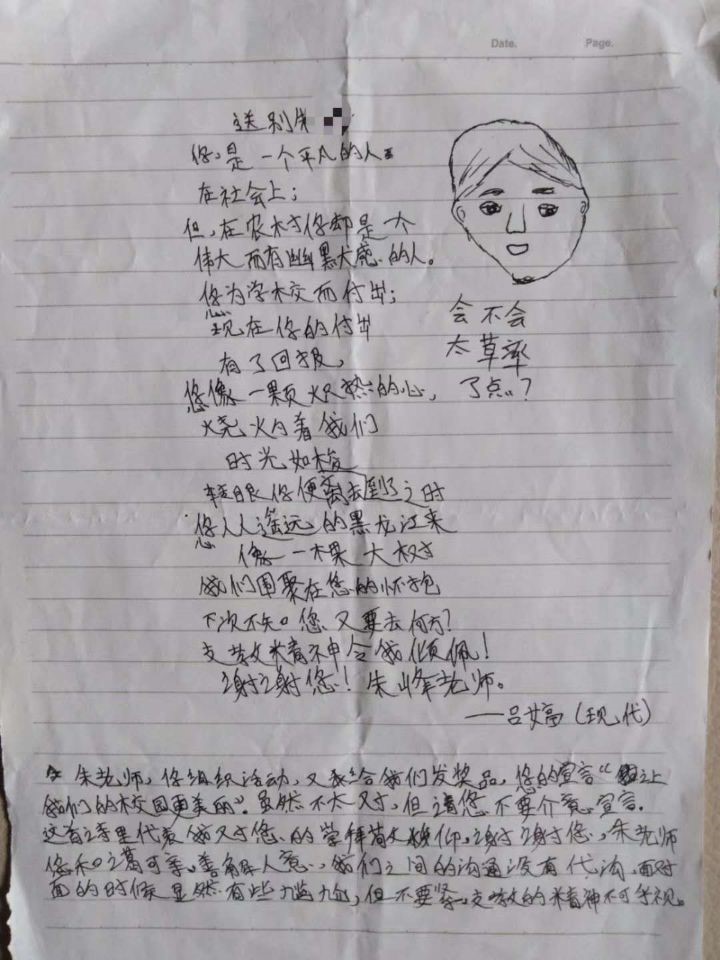 Date. Page.
送别朱
您,是一个平凡的人。
在社会上;
但,在农村您却是一个
伟大而有幽默感的人。
您为学校而付出;
现在您的付出
有了回报,
您像一颗火热的心,
烧灼着我们
时光如梭
转眼您便离去到了之时
您从遥远的黑龙江来
像一棵大树
我们围聚在您的怀抱
下次不知您又要去何方?
支教精神令我倾佩!
谢谢您!朱峰老师。
——吕婷(现代)
会不会
太草率
了点?
朱老师,您组织活动,又给我们发奖品,您的宣言“让
我们的校园更美丽”。虽然不太对,但请您不要介意宣言.
这首诗里代表我对您的崇拜敬仰,谢谢您,朱老师
您和蔼可亲,善解人意,我们之间的沟通没有代沟,面对
面的时候显然有些尴尬,但不要紧,支教的精神不可乎视。